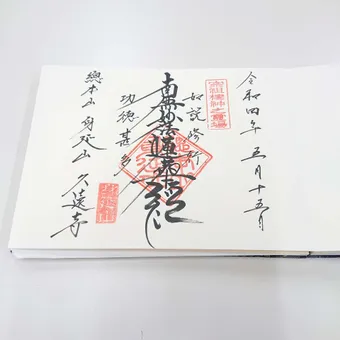 令和四年 五月十五日
如説修行
南無妙法蓮華経
功徳甚多
總本山 身延山 久遠寺
身延山